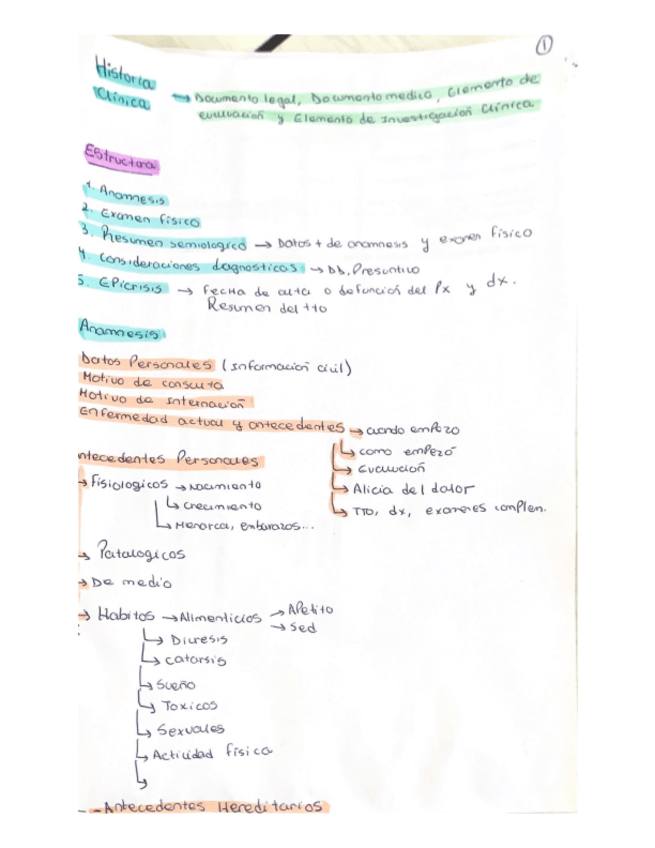 1
Historia
Clínica → Documento legal, Documento medico, Elemento de
evaluación y Elemento de Investigación Clínica
Estructura
1. Anamnesis
2. Examen físico
3. Resumen semiologico → Datos + de anamnesis y examen físico
4. Consideraciones diagnosticas → Dd, Presuntivo
5. Epicrisis → Fecha de alta o defunción del Px y dx.
Resumen del tto
Anamnesis
Datos Personales (Información civil)
Motivo de consulta
Motivo de Internación
Enfermedad actual y antecedentes → cuando empezo
↳ como empezó
ntecedentes Personales
↳ Evolución
→ Fisiologicos → Nacimiento
↳ Alicia del dolor
↳ crecimiento
↳ TTO, dx, examenes complen.
↳ Menarca, embarazos...
→ Patalogicos
→ De medio
→ Habitos → Alimenticios → Apetito
→ Sed
↳ Diuresis
↳ catarsis
↳ Sueño
↳ Toxicos
↳ Sexuales
↳ Actividad física
↳
- - Antecedentes Hereditarios